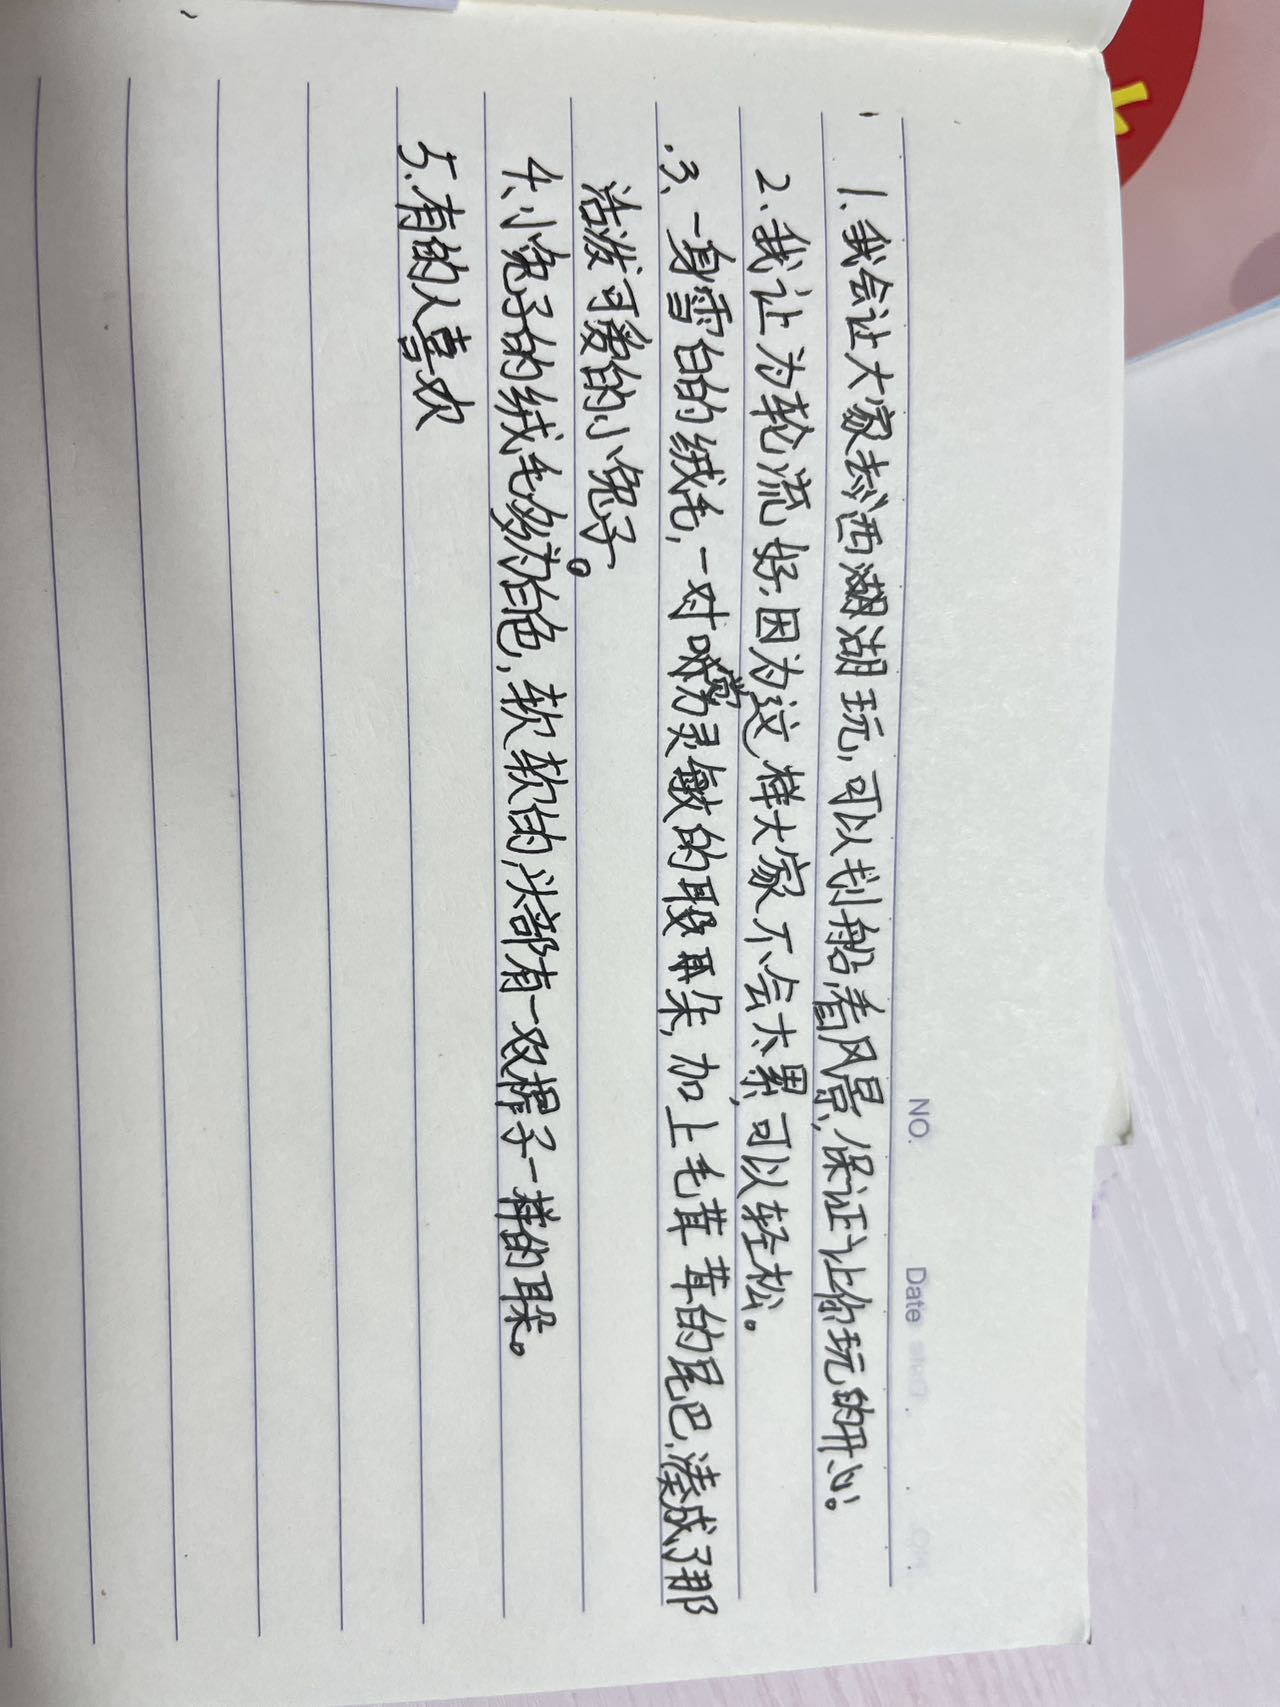 NO.
Date
1.我会让大家去西湖湖玩,可以划船,看风景,保证让你玩的开心。
2.我让为轮流好,因为这样大家不会太累,可以轻松。
3.一身雪白的绒毛,一对灵敏的耳朵,加上毛茸茸的尾巴,凑成了那
活泼可爱的小兔子。
4.小兔子的绒毛多为白色,软软的,头部有一双子一样的耳朵。
5.有的人喜欢
k